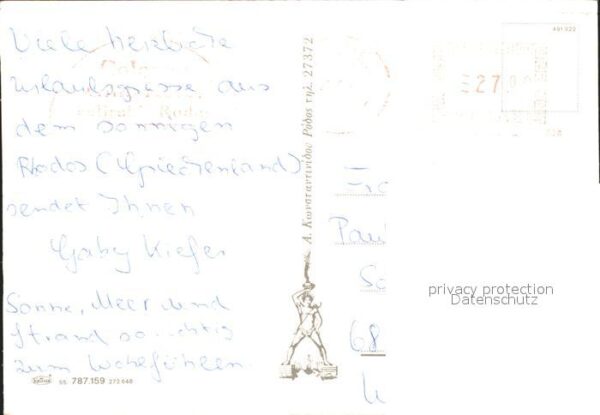 Viele herzliche
Urlaubsgrüsse aus
dem sonnigen
Rodos (Griechenland)
sendet Ihnen
Gaby Kiefer
Sonne, Meer und
Strand so richtig
zum Wohlfühlen.
55 787.159 272 648
Δ. Κωνσταντινίδου Ρόδος τηλ. 27372
491 922
27
Pau
68
privacy protection
Datenschutz